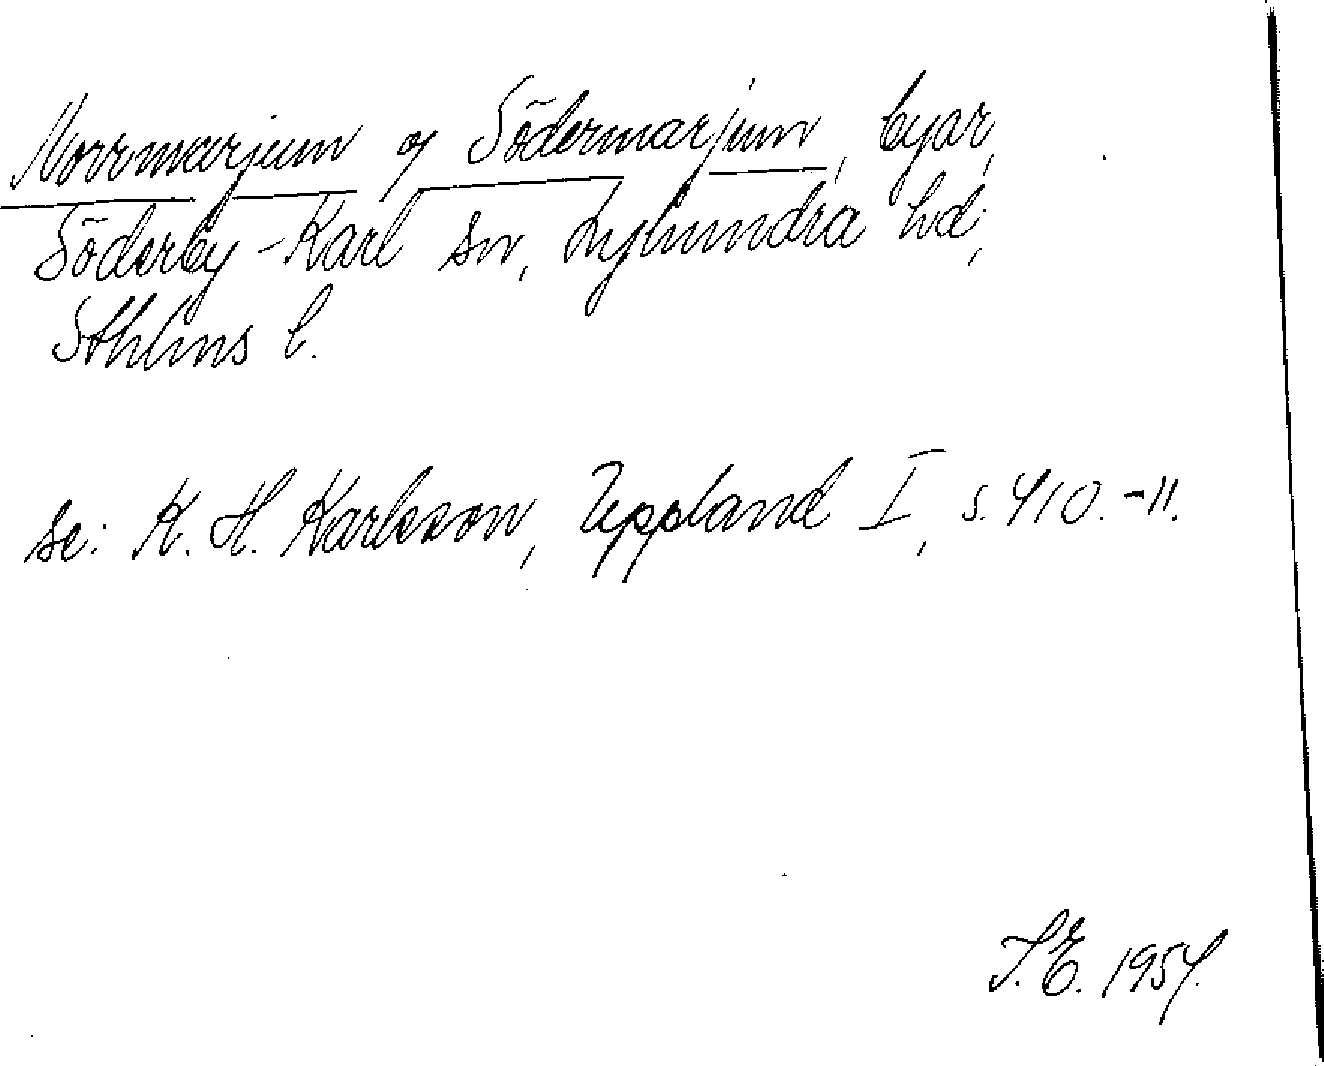 Norrmarjum o. Södermarjum, byar,
Söderby-Karl sn, Lyhundra hd,
Sthlms l.
se: K. H. Karlsson, Uppland I, s. 410.-11.
S.E. 1954.